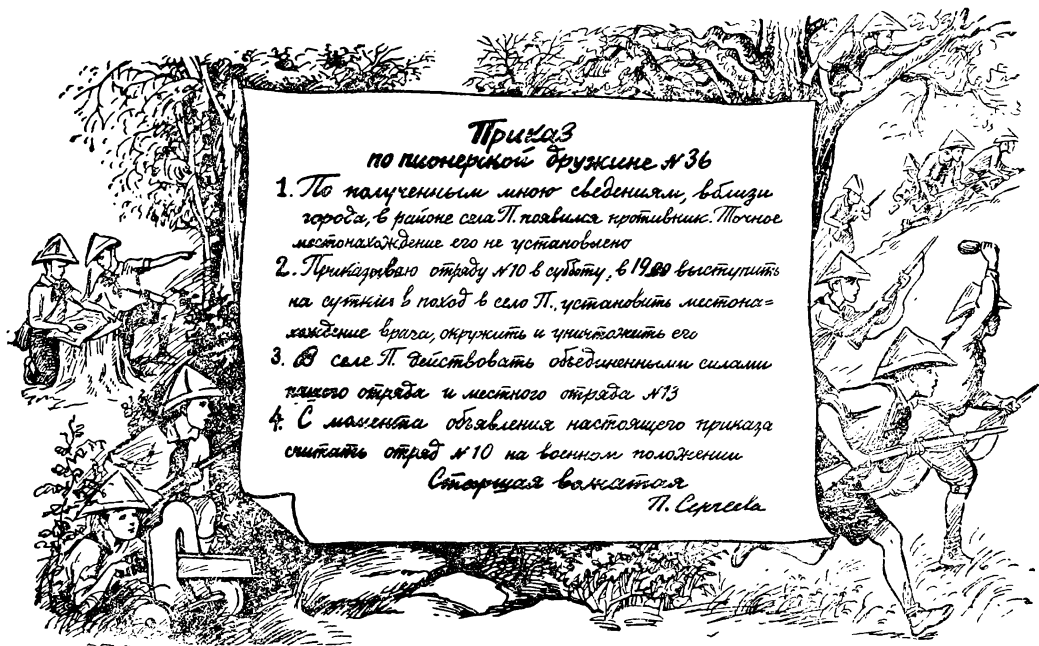 Приказ
по пионерской дружине №36
1. По полученным мною сведениям, вблизи
города, в районе села П. появился противник. Точное
местонахождение его не установлено
2. Приказываю отряду №10 в субботу, в 19 00 выступить
на сутки в поход в село П., установить местона-
хождение врага, окружить и уничтожить его
3. В селе П. действовать объединенными силами
нашего отряда и местного отряда №13
4. С момента объявления настоящего приказа
считать отряд №10 на военном положении
Старшая вожатая
П. Сергеева